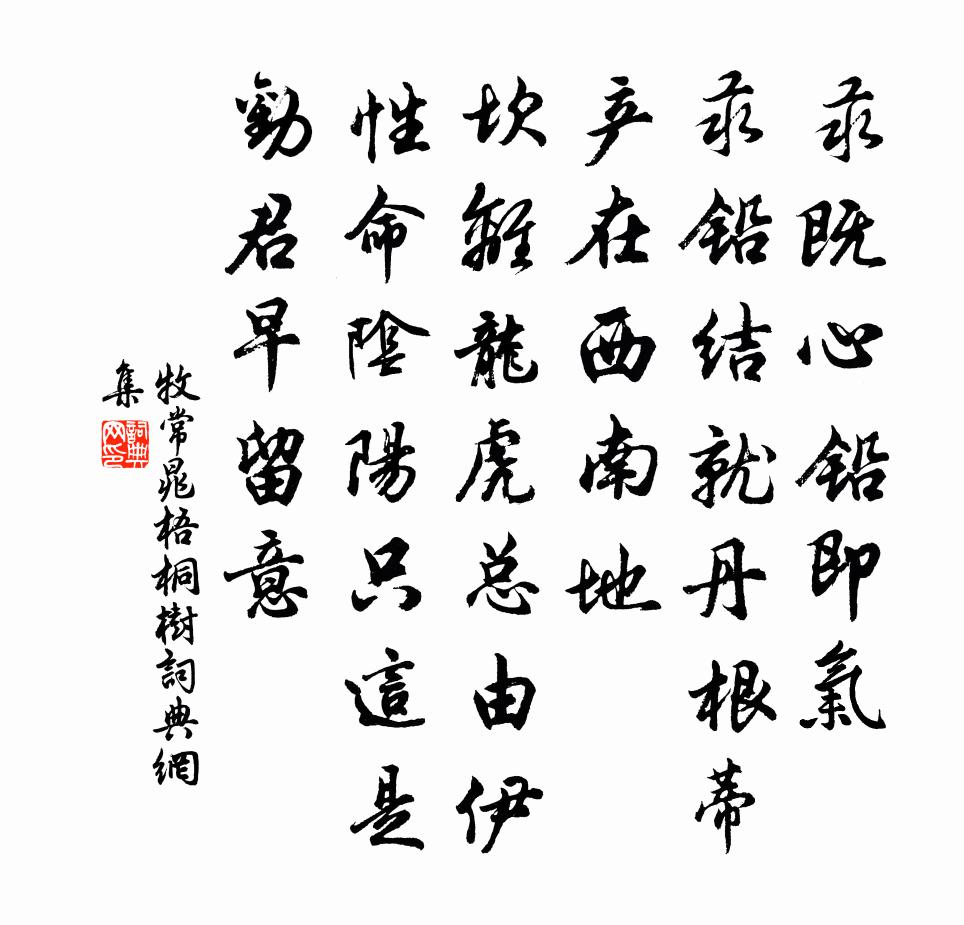 汞既心鉛即氣
汞鉛结就丹根蒂
产在西南地
坎離龍虎总由伊
性命陰陽只這是
勸君早留意
牧常晁梧桐樹詞典網
集
詞典
网印